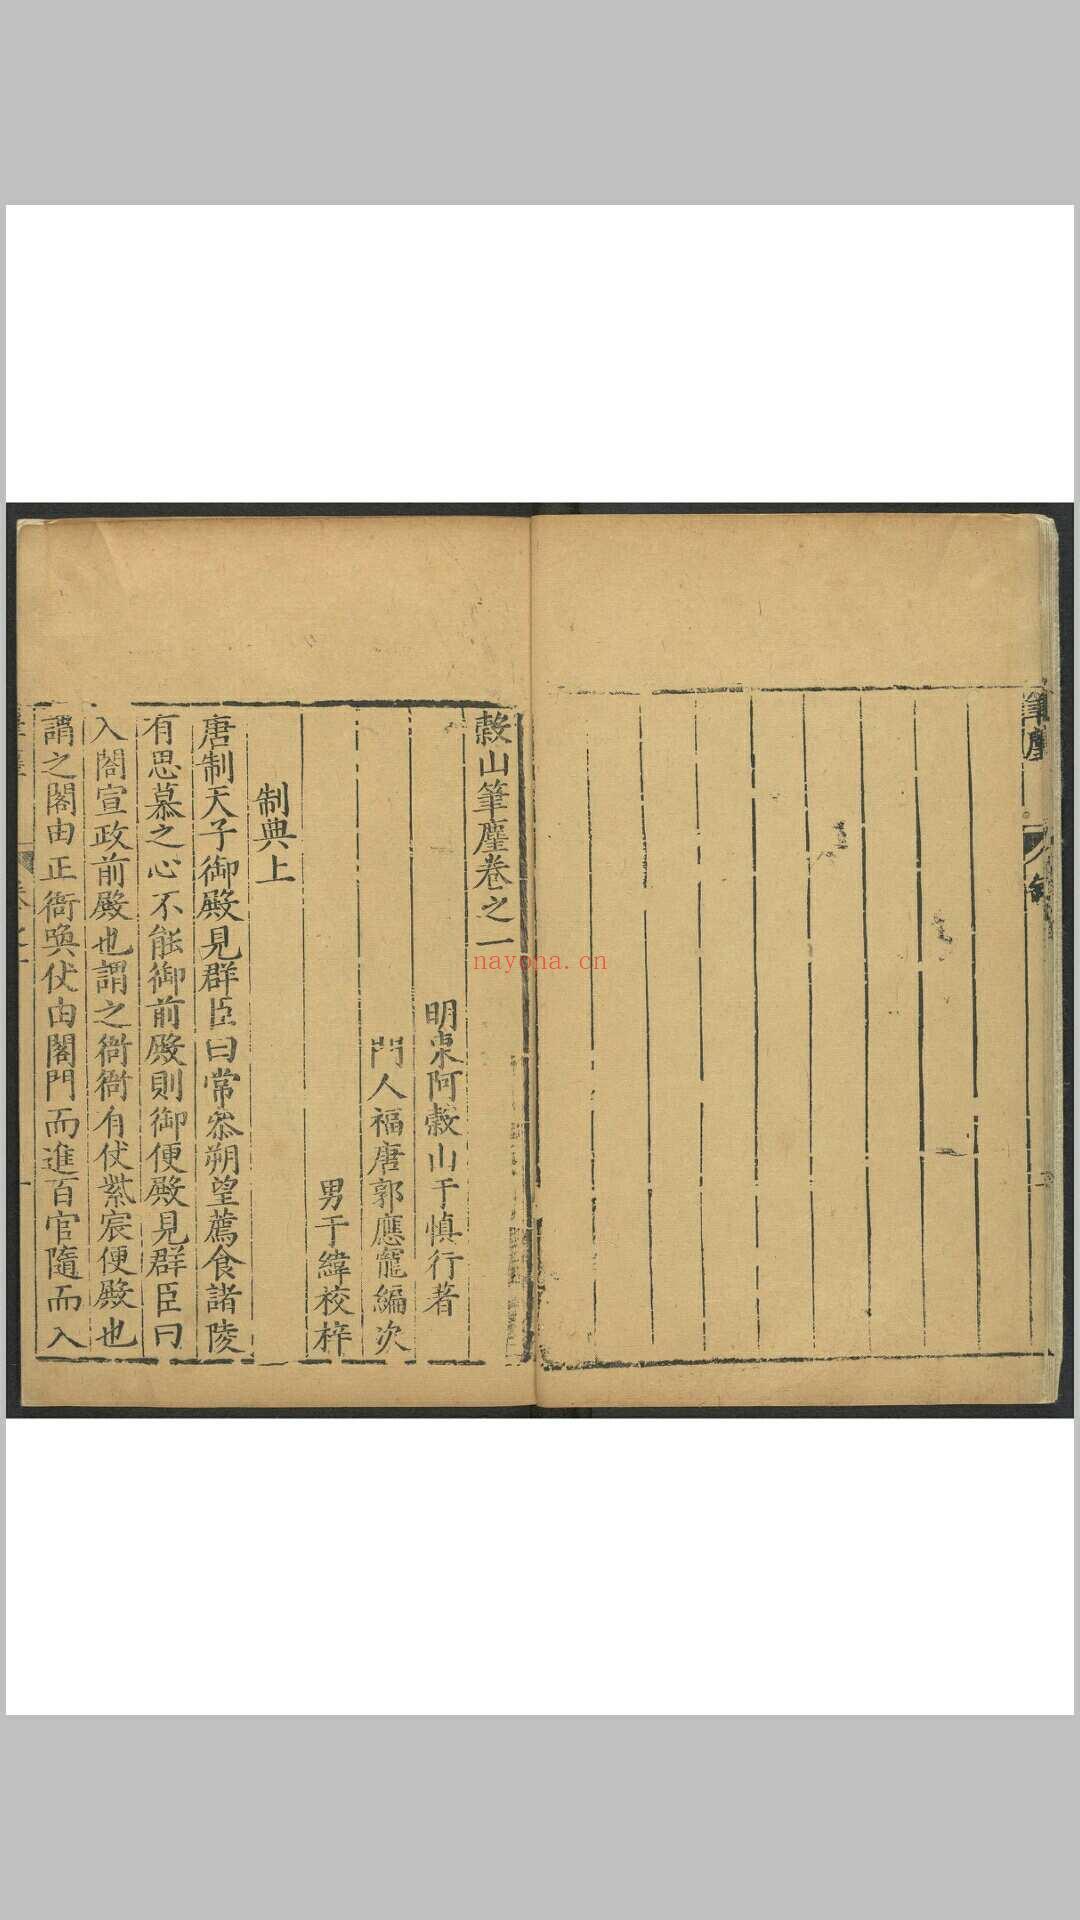 筆麈
榖山筆麈卷之一
明東阿榖山于慎行著
門人福唐郭應寵編次
男于緯校梓
制典上
唐制天子御殿見群臣曰常叅朔望薦食諸陵
有思慕之心不能御前殿則御便殿見群臣曰
入閤宣政前殿也謂之衙衙有仗紫宸便殿也
謂之閣由正衙喚仗由閣門而進百官隨而入
卷之一
nayona.cn